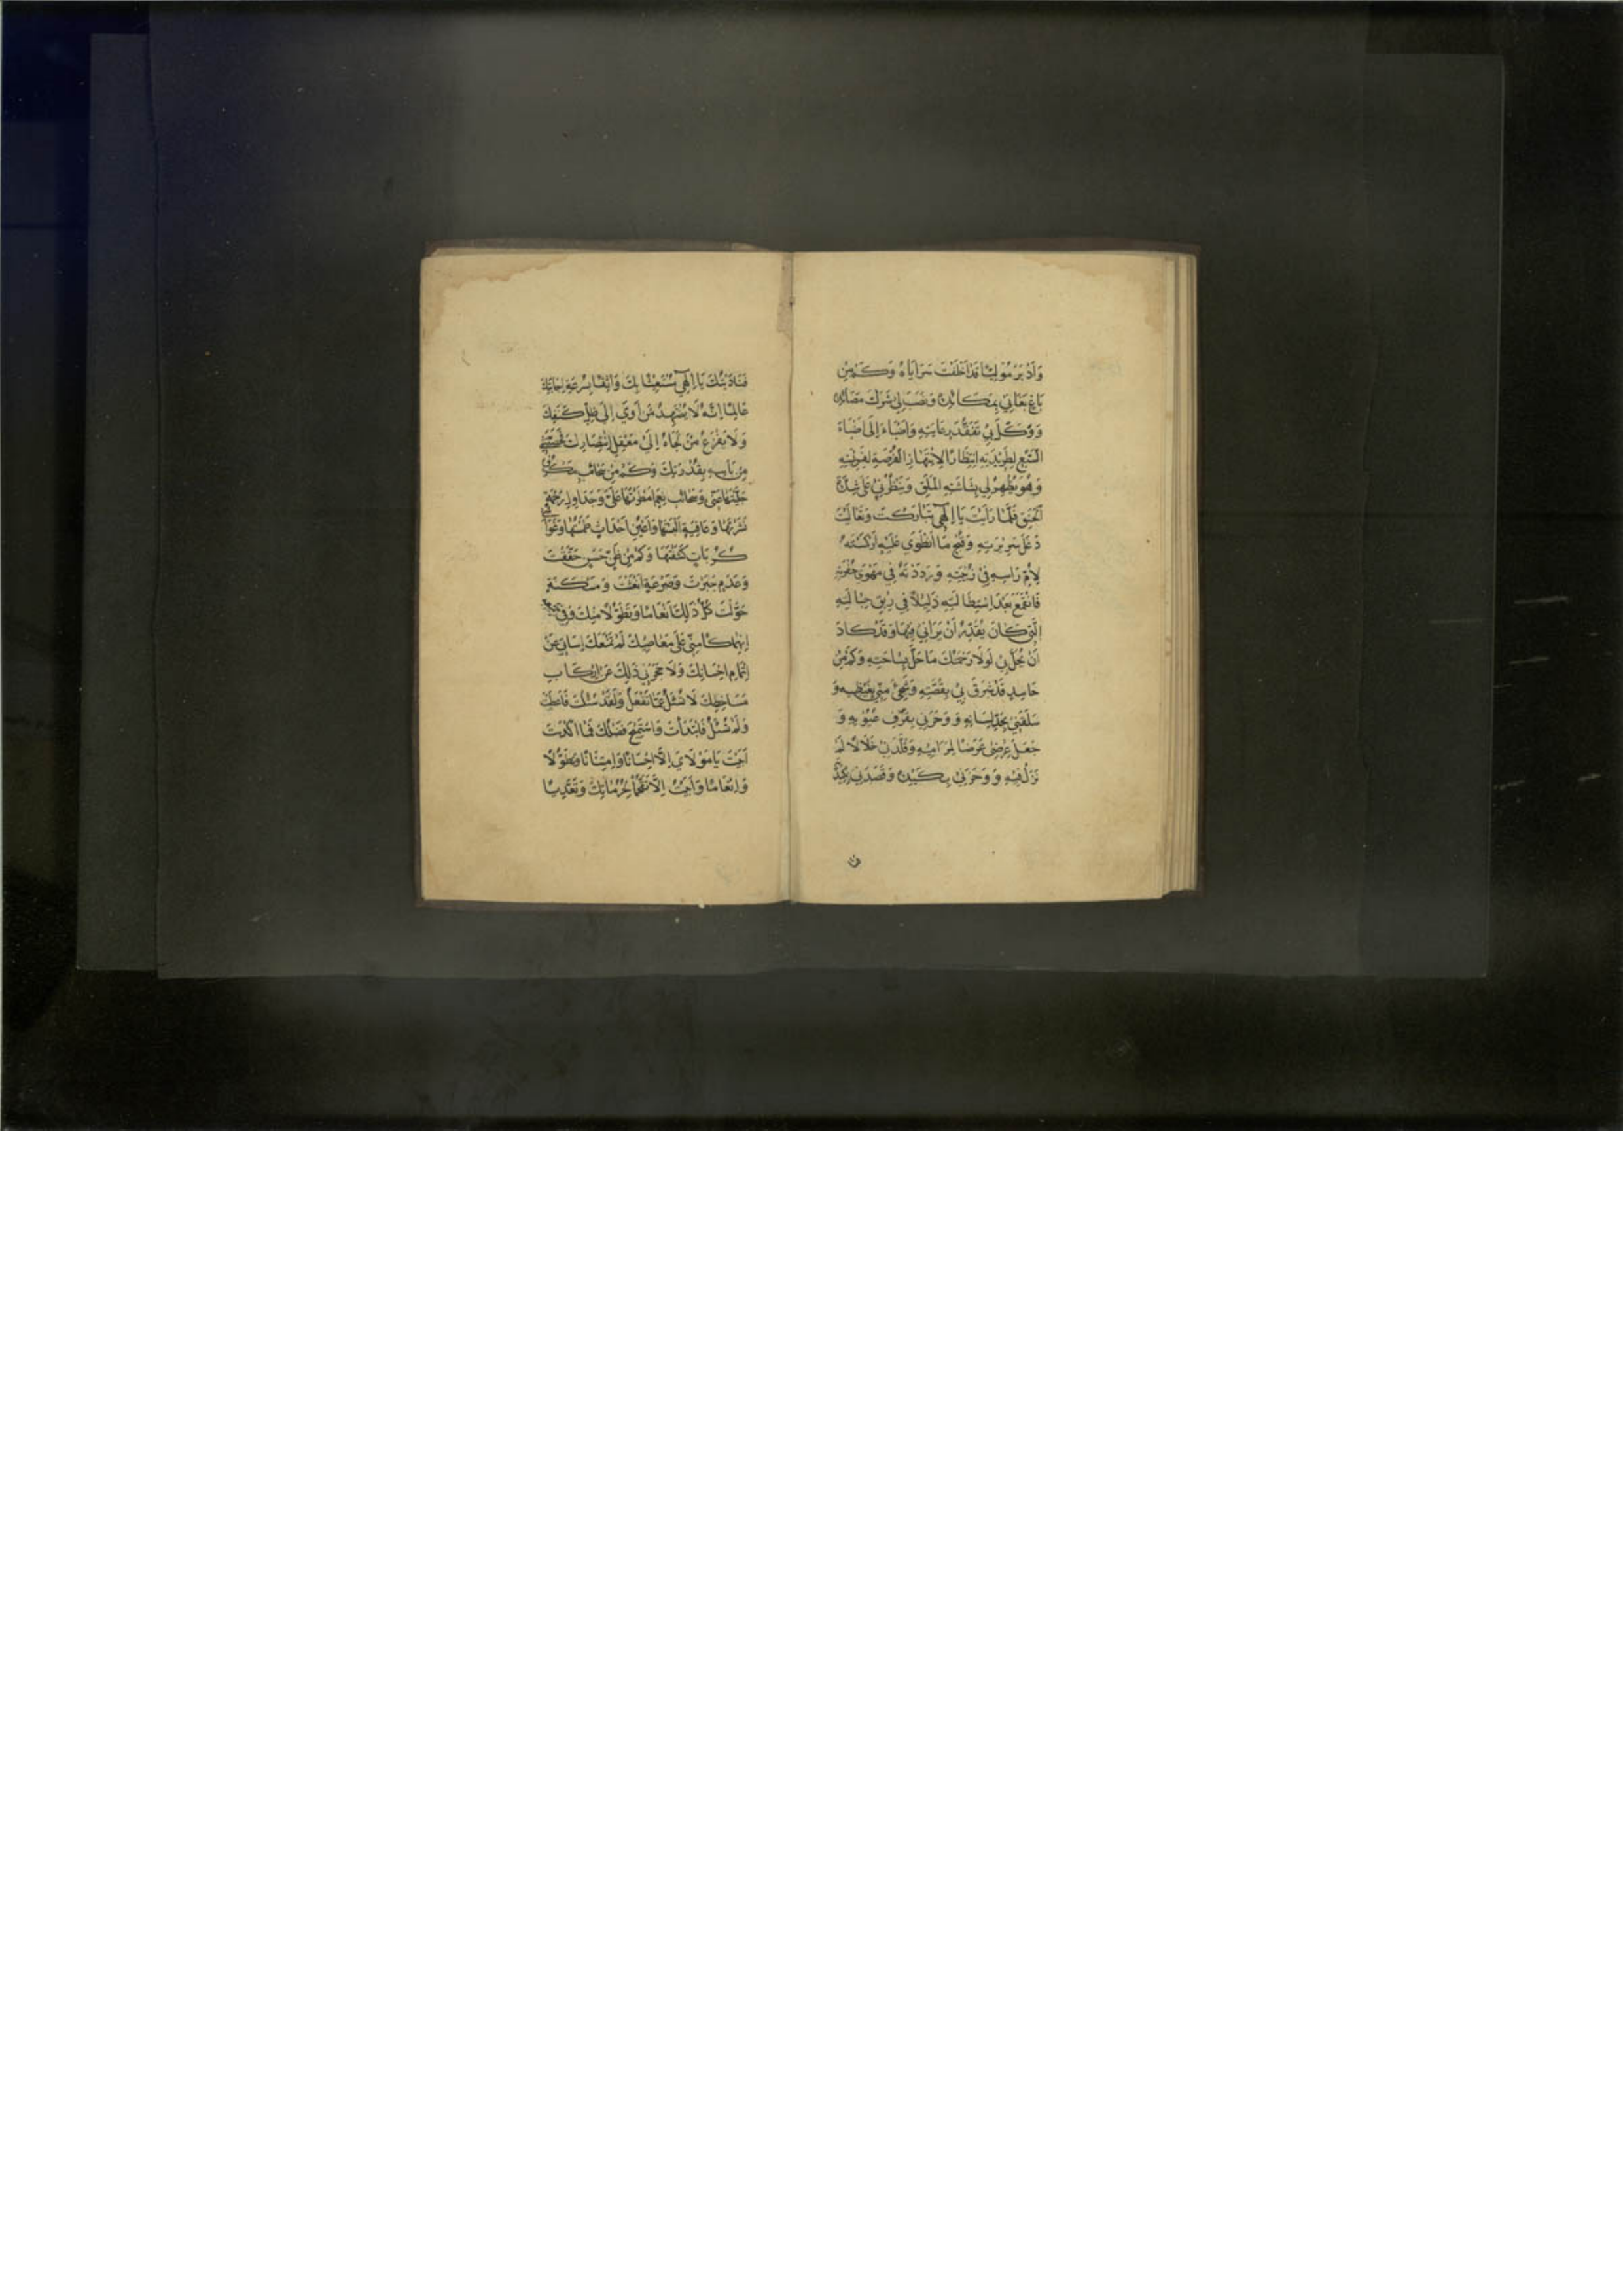 وَاَدْبَرَ مُوَلِّيًا قَدْ اَخْلَفَتْ سَرَايَاهُ وَكَمْ مِنْ
بَاغٍ بَغَانِي بِمَكَائِدِهِ وَنَصَبَ لِي شَرَكَ مَصَائِدِهِ
وَوَكَّلَ بِي تَفَقُّدَ رِعَايَتِهِ وَاَضْبَاءَ اِلَيَّ اِضْبَاءَ
السَّبُعِ لِطَرِيدَتِهِ اِنْتِظَارًا لِاِنْتِهَازِ الْفُرْصَةِ لِفَرِيسَتِهِ
وَهُوَ يُظْهِرُ لِي بَشَاشَةَ الْمَلَقِ وَيَنْظُرُنِي عَلَى شِدَّةِ
الْحَنَقِ فَلَمَّا رَاَيْتَ يَا اِلٰهِي تَبَارَكْتَ وَتَعَالَيْتَ
دَغَلَ سَرِيرَتِهِ وَقُبْحَ مَا انْطَوَى عَلَيْهِ اَرْكَسْتَهُ
لِاُمِّ رَاْسِهِ فِي زُبْيَتِهِ وَرَدَدْتَهُ فِي مَهْوَى حُفْرَتِهِ
فَانْقَمَعَ بَعْدَ اسْتِطَالَتِهِ ذَلِيلًا فِي رِبَقِ حِبَالَتِهِ
الَّتِي كَانَ يُقَدِّرُ اَنْ يَرَانِي فِيهَا وَقَدْ كَادَ
اَنْ يَحُلَّ بِي لَوْلَا رَحْمَتُكَ مَا حَلَّ بِسَاحَتِهِ وَكَمْ مِنْ
حَاسِدٍ قَدْ شَرِقَ بِي بِغُصَّتِهِ وَشَجِيَ مِنِّي بِغَيْظِهِ وَ
سَلَقَنِي بِحَدِّ لِسَانِهِ وَوَحَرَنِي بِقَرْفِ عُيُوبِهِ وَ
جَعَلَ عِرْضِي غَرَضًا لِمَرَامِيهِ وَقَلَّدَنِي خِلَالًا لَمْ
تَزَلْ فِيهِ وَوَحَرَنِي بِكَيْدِهِ وَقَصَدَنِي بِمَكِيدَتِهِ
فَنَادَيْتُكَ يَا اِلٰهِي مُسْتَغِيثًا بِكَ وَاثِقًا بِسُرْعَةِ اِجَابَتِكَ
عَالِمًا اِنَّهُ لَا يُضْطَهَدُ مَنْ اَوَى اِلَى ظِلِّ كَنَفِكَ
وَلَا يَفْزَعُ مَنْ لَجَاءَ اِلَى مَعْقِلِ انْتِصَارِكَ فَحَصَّنْتَنِي
مِنْ بَاْسِهِ بِقُدْرَتِكَ وَكَمْ مِنْ سَحَائِبِ مَكْرُوهٍ
جَلَّيْتَهَا عَنِّي وَسَحَائِبِ نِعَمٍ اَمْطَرْتَهَا عَلَيَّ وَجَدَاوِلِ رَحْمَةٍ
نَشَرْتَهَا وَعَافِيَةٍ اَلْبَسْتَهَا وَاَعْيُنِ اَحْدَاثٍ طَمَسْتَهَا وَغَوَاشِي
كُرُبَاتٍ كَشَفْتَهَا وَكَمْ مِنْ ظَنٍّ حَسَنٍ حَقَّقْتَ
وَعَدَمٍ جَبَرْتَ وَصَرْعَةٍ اَنْعَشْتَ وَمَسْكَنَةٍ
حَوَّلْتَ كُلُّ ذٰلِكَ اِنْعَامًا وَتَطَوُّلًا مِنْكَ وَفِي جَمِيعِهِ
اِنْهِمَاكًا مِنِّي عَلَى مَعَاصِيكَ لَمْ تَمْنَعْكَ اِسَاءَتِي عَنْ
اِتْمَامِ اِحْسَانِكَ وَلَا حَجَرَنِي ذٰلِكَ عَنِ ارْتِكَابِ
مَسَاخِطِكَ لَا تُسْئَلُ عَمَّا تَفْعَلُ وَلَقَدْ سُئِلْتَ فَاَعْطَيْتَ
وَلَمْ تُسْئَلْ فَابْتَدَاْتَ وَاسْتُمِيحَ فَضْلُكَ فَمَا اَكْدَيْتَ
اَبَيْتَ يَا مَوْلَايَ اِلَّا اِحْسَانًا وَامْتِنَانًا وَتَطَوُّلًا
وَاِنْعَامًا وَاَبَيْتُ اِلَّا تَقَحُّمًا لِحُرُمَاتِكَ وَتَعَدِّيًا